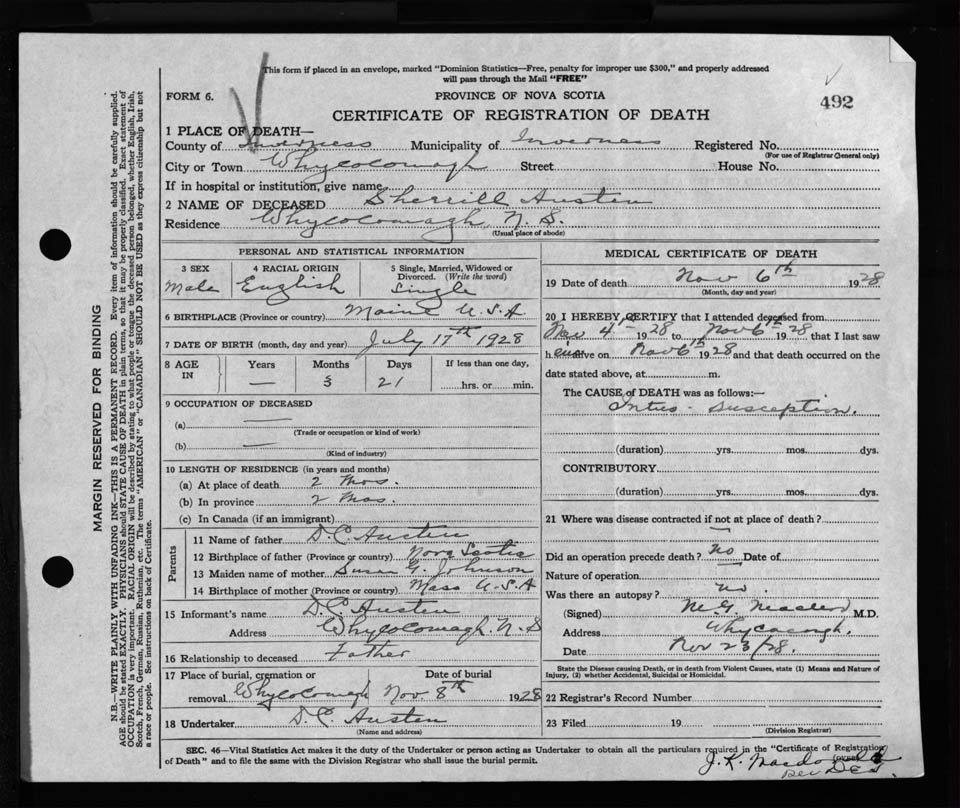 This form if placed in an envelope, marked "Dominion Statistics—Free, penalty for improper use $300," and properly addressed
will pass through the Mail "FREE"
FORM 6. PROVINCE OF NOVA SCOTIA
492
CERTIFICATE OF REGISTRATION OF DEATH
1 PLACE OF DEATH—
County of Inverness Municipality of Inverness Registered No.
(For use of Registrar General only)
City or Town Whycocomagh Street House No.
If in hospital or institution, give name
2 NAME OF DECEASED Sherrill Austen
Residence Whycocomagh, N. S.
(Usual place of abode)
PERSONAL AND STATISTICAL INFORMATION
3 SEX 4 RACIAL ORIGIN 5 Single, Married, Widowed or Divorced. (Write the word)
Male English Single
6 BIRTHPLACE (Province or country) Maine U.S.A
7 DATE OF BIRTH (month, day and year) July 17th 1928
8 AGE IN Years Months Days If less than one day,
— 3 21 hrs. or min.
9 OCCUPATION OF DECEASED
(a) —
(Trade or occupation or kind of work)
(b) —
(Kind of industry)
10 LENGTH OF RESIDENCE (in years and months)
(a) At place of death 2 Mos.
(b) In province 2 Mos.
(c) In Canada (if an immigrant)
Parents
11 Name of father D.C. Austen
12 Birthplace of father (Province or country) Nova Scotia
13 Maiden name of mother Susan G. Johnson
14 Birthplace of mother (Province or country) Mass U.S.A
15 Informant's name D.C. Austen
Address Whycocomagh. N. S
16 Relationship to deceased Father
17 Place of burial, cremation or Date of burial
removal Whycocomagh Nov. 8th 1928
18 Undertaker D.C. Austen
(Name and address)
MEDICAL CERTIFICATE OF DEATH
19 Date of death Nov 6th 1928
(Month, day and year)
20 I HEREBY CERTIFY that I attended deceased from
Nov 4th 1928 to Nov 6th 1928 that I last saw
h alive on Nov 6th 1928 and that death occurred on the
date stated above, at m.
The CAUSE of DEATH was as follows:—
Intus-susception.
(duration) yrs. mos. dys.
CONTRIBUTORY
(duration) yrs. mos. dys.
21 Where was disease contracted if not at place of death?
—
Did an operation precede death? no Date of
Nature of operation —
Was there an autopsy? no.
(Signed) M.D.
Address
Date Nov 23/28.
State the Disease causing Death, or in death from Violent Causes, state (1) Means and Nature of
Injury, (2) whether Accidental, Suicidal or Homicidal.
22 Registrar's Record Number
23 Filed 19
(Division Registrar)
SEC. 46—Vital Statistics Act makes it the duty of the Undertaker or person acting as Undertaker to obtain all the particulars required in the "Certificate of Registration
of Death" and to file the same with the Division Registrar who shall issue the burial permit. (over)
J. K.
MARGIN RESERVED FOR BINDING
N.B.—WRITE PLAINLY WITH UNFADING INK—THIS IS A PERMANENT RECORD. Every item of information should be carefully supplied.
AGE should be stated EXACTLY. PHYSICIANS should STATE CAUSE OF DEATH in plain terms, so that it may be properly classified. Exact statement of
OCCUPATION is very important. RACIAL ORIGIN will be described by stating to what people or tongue the deceased person belonged, whether English, Irish,
Scotch, French, German, Russian, Ruthenian, etc. The terms "AMERICAN" or "CANADIAN" SHOULD NOT BE USED as they express citizenship but not
a race or people. See instructions on back of Certificate.